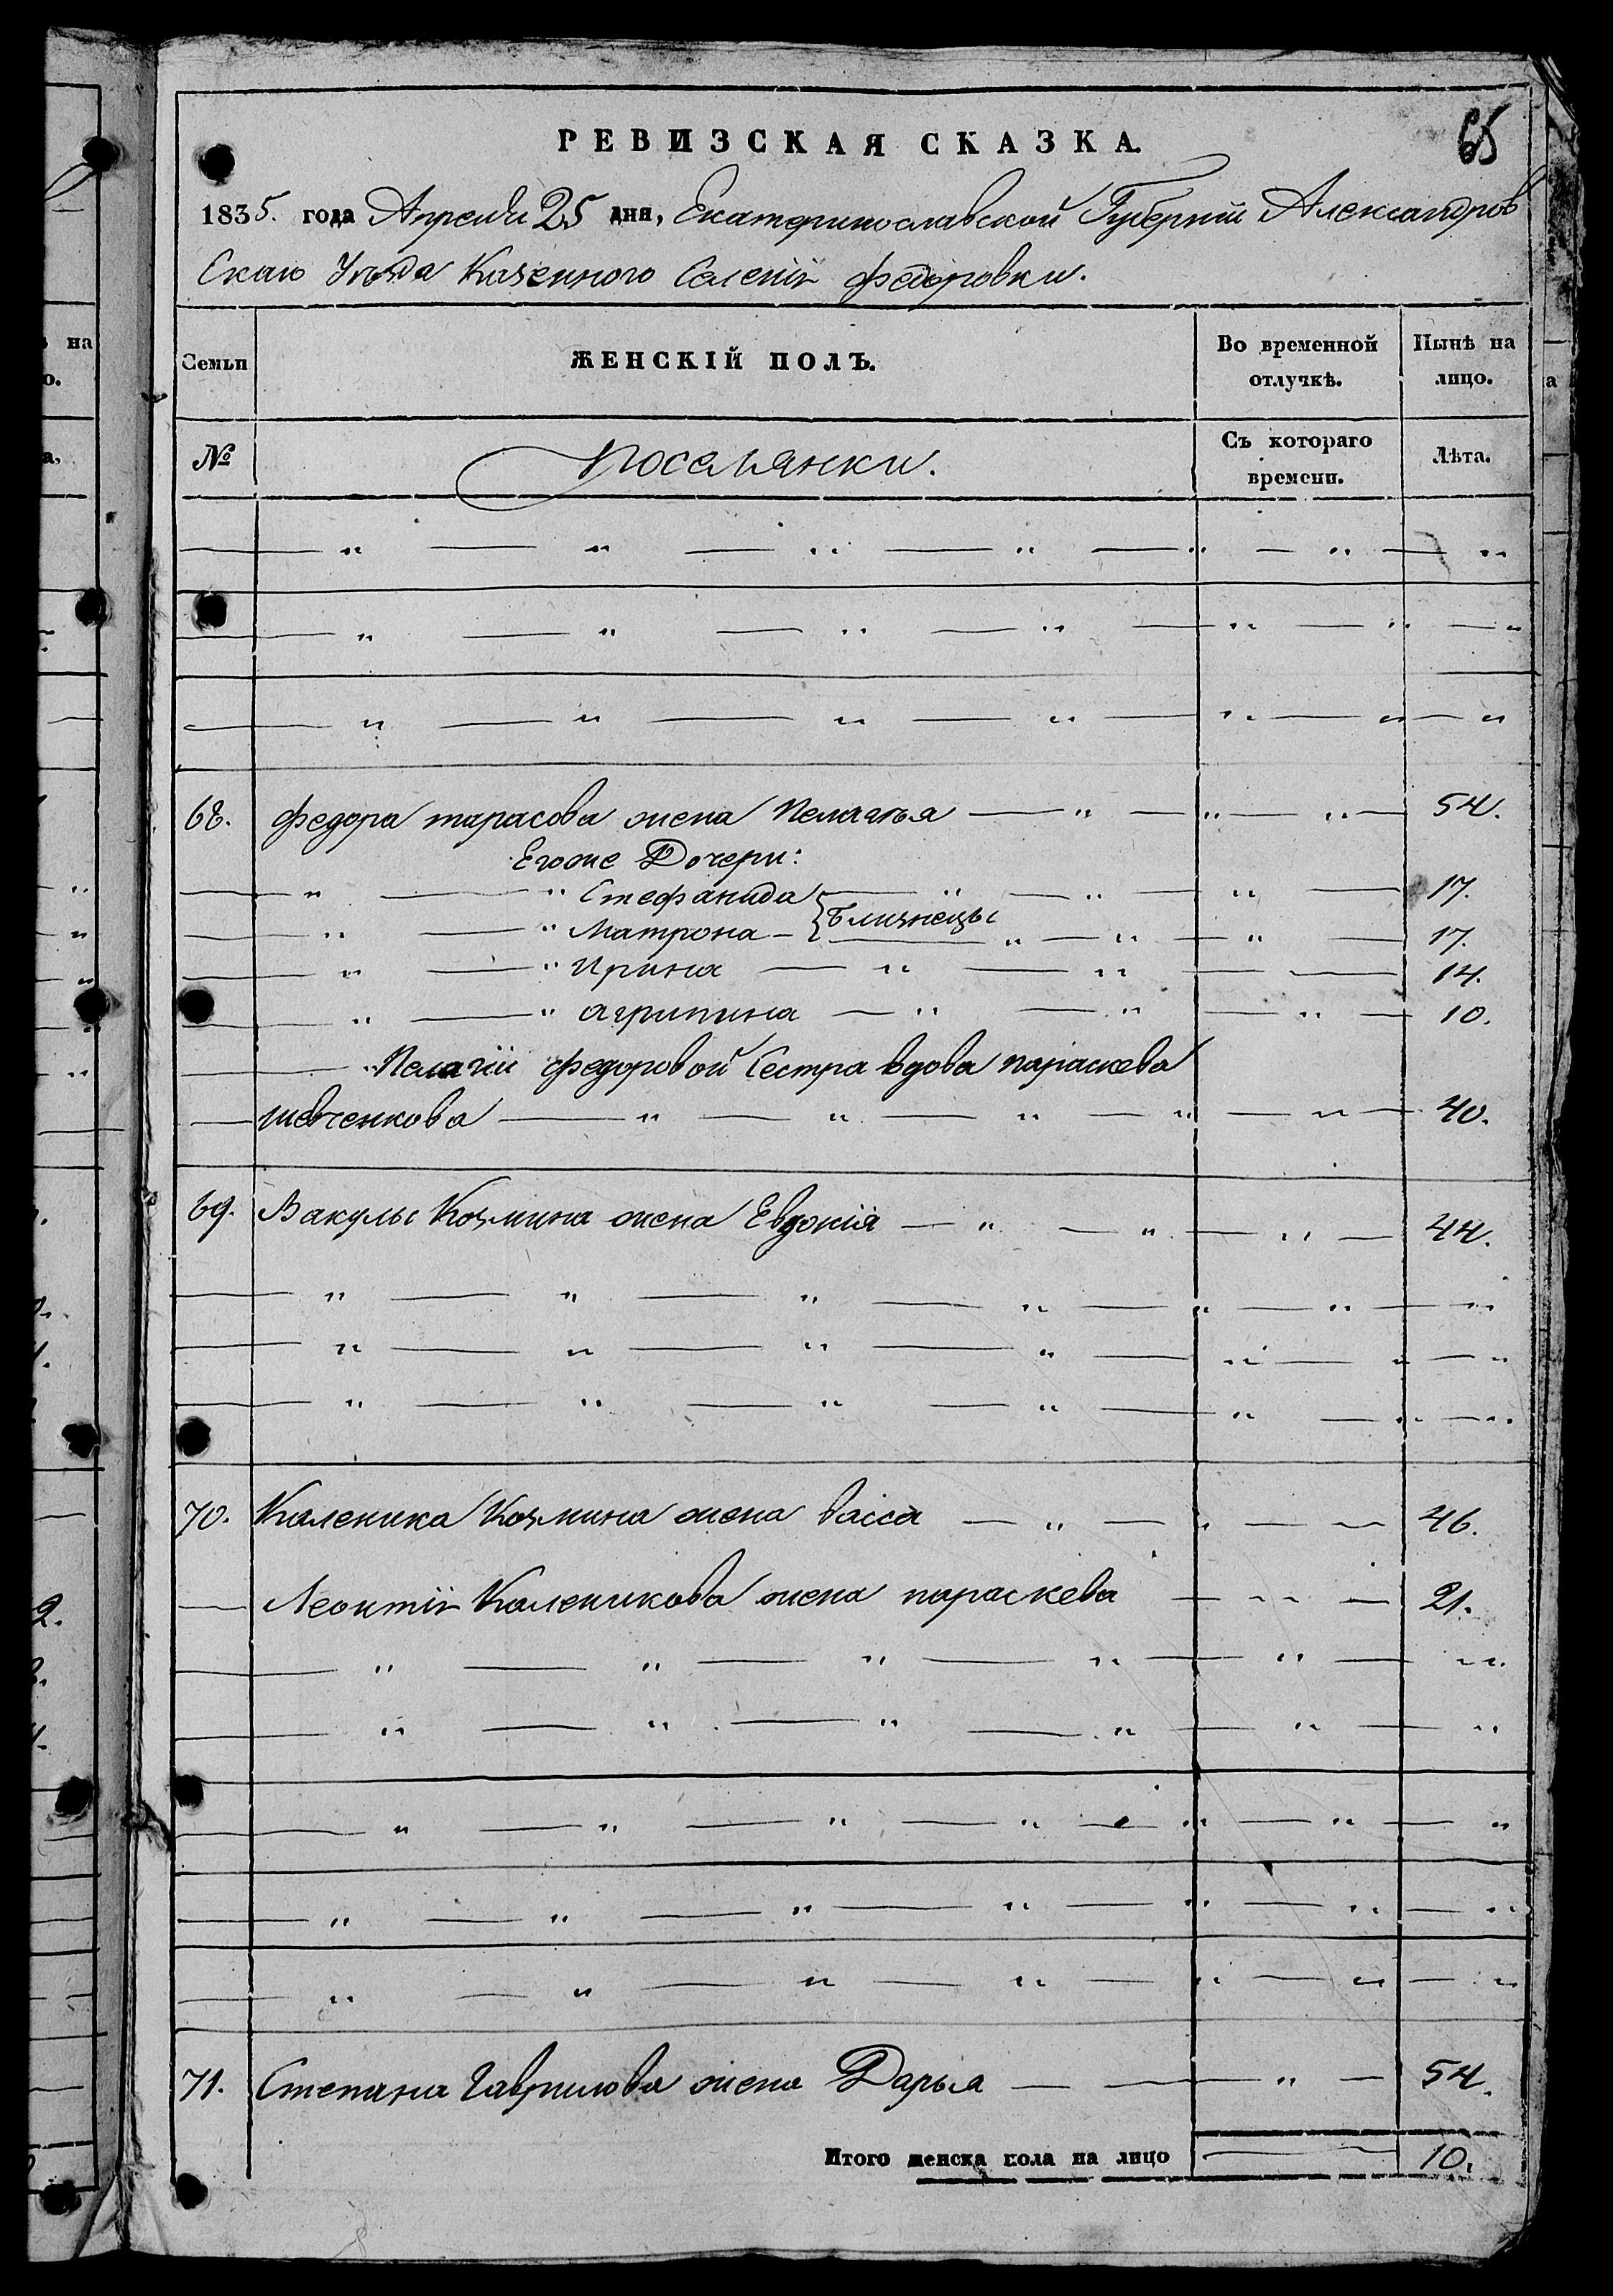 РЕВИЗСКАЯ СКАЗКА.
65
1835. года Апреля 25 дня, Екатеринославской Губернии Александров
скаго Уезда Казенного Селенія федоровки.
Семьи
ЖЕНСКІЙ ПОЛЪ.
Во временной отлучкѣ.
Нынѣ на лицо.
№
Поселянки.
Съ котораго времени.
Лѣта.
— „ — „ — „ — „ — „ — „ — „
— „ — „ — „ — „ — „ — „ — „
— „ — „ — „ — „ — „ — „ — „
68. федора тарасова жена Пелагѣя — „ — „ — „ — 54.
Егоже Дочери:
— „ — „ Стефанида — „ — „ — „ — 17.
Близнецы
— „ — „ Матрона — „ — „ — „ — 17.
— „ — „ Ирина — „ — „ — 14.
— „ — „ агрипина — „ — „ — „ — 10.
— „ Пелагіи федоровой Сестра вдова параскева
— шевченкова — „ — „ — „ — „ — „ — 40.
69. Вакулы Козмина жена Евдокія — „ — „ — „ — 44.
— „ — „ — „ — „ — „ — „ — „
— „ — „ — „ — „ — „ — „ — „
— „ — „ — „ — „ — „ — „ — „
70. Каленика Козмина жена васса — „ — „ — „ 46.
— Леонтія Каленикова жена параскева — „ — 21.
— „ — „ — „ — „ — „ — „
— „ — „ — „ — „ — „ — „
— „ — „ — „ — „ — „ — „ — „
— „ — „ — „ — „ — „ — „ — „
— „ — „ — „ — „ — „ — „ — „
71. Степана Гаврилова жена Дарья — — „ — 54.
Итого женска пола на лицо — 10.